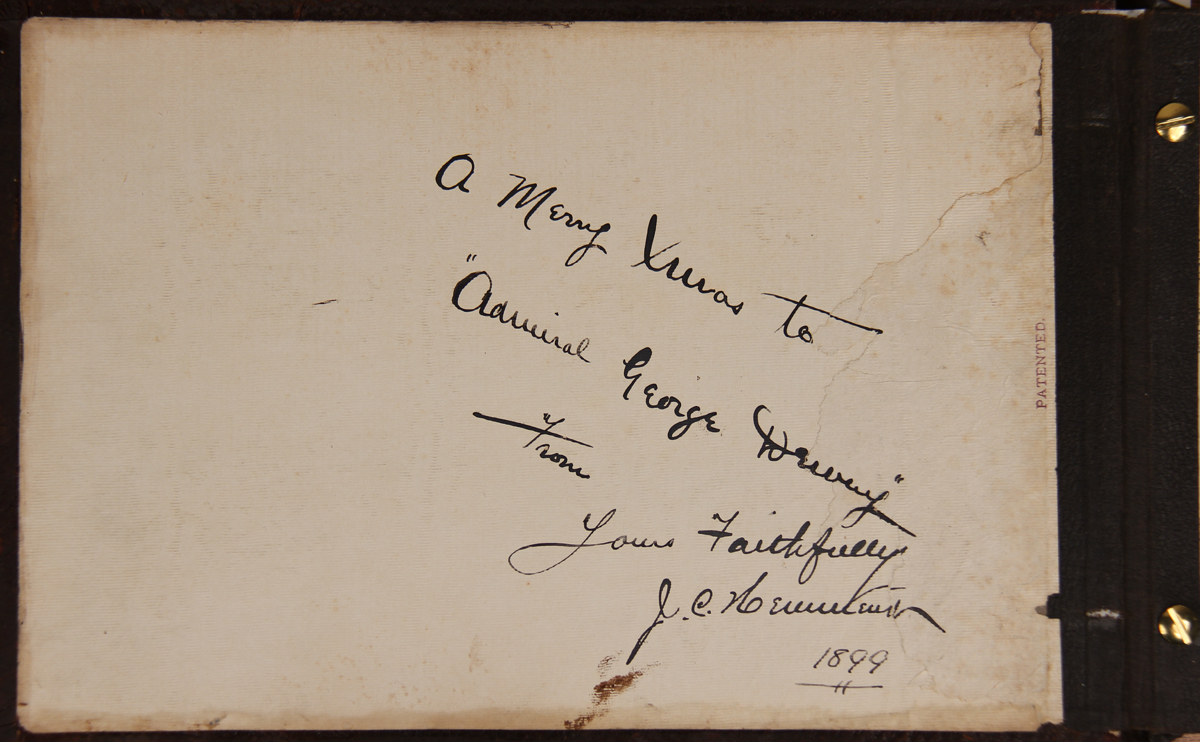 A Merry Xmas to
"Admiral George Dewey"
From
Yours Faithfully
J. C. Hemment
1899
PATENTED.